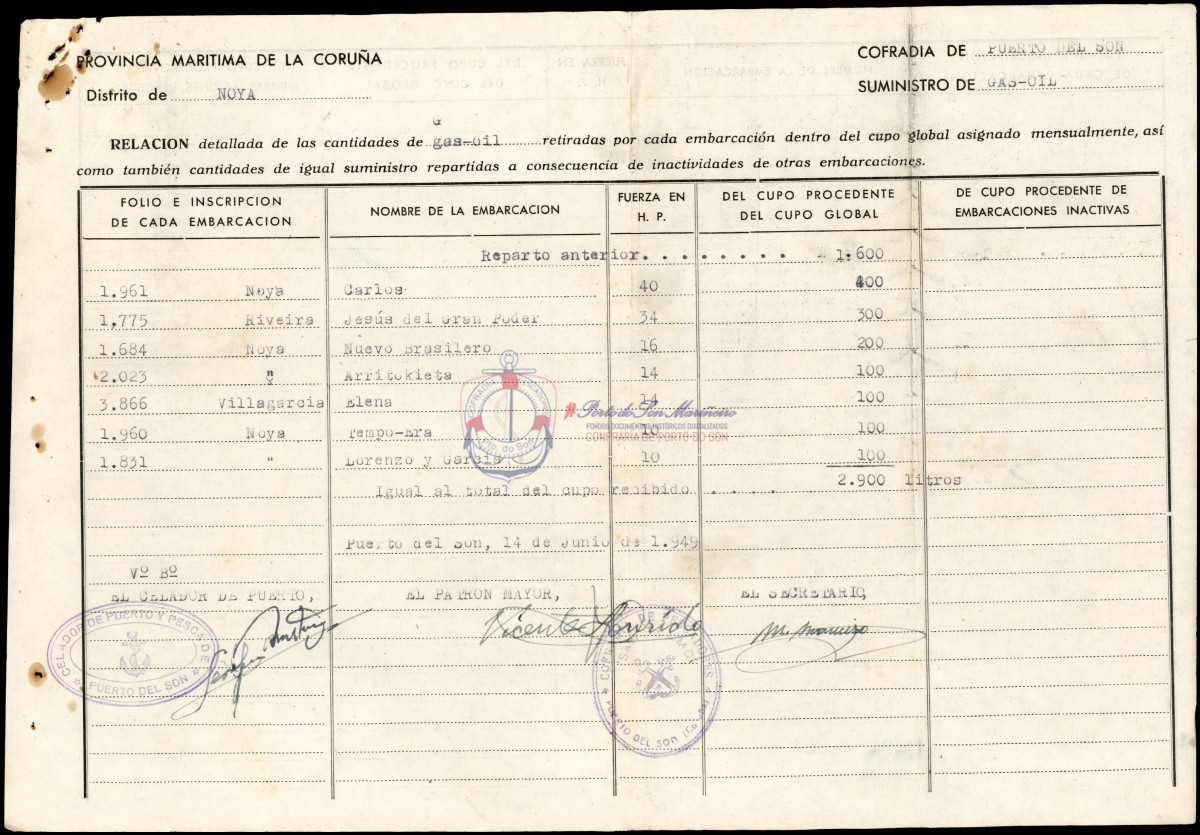 PROVINCIA MARITIMA DE LA CORUÑA
COFRADIA DE PUERTO DEL SON
Distrito de NOYA
SUMINISTRO DE GAS-OIL
G
RELACION detallada de las cantidades de gas-oil retiradas por cada embarcación dentro del cupo global asignado mensualmente, así
como también cantidades de igual suministro repartidas a consecuencia de inactividades de otras embarcaciones.
FOLIO E INSCRIPCION DE CADA EMBARCACION | NOMBRE DE LA EMBARCACION | FUERZA EN H. P. | DEL CUPO PROCEDENTE DEL CUPO GLOBAL | DE CUPO PROCEDENTE DE EMBARCACIONES INACTIVAS
Reparto anterior. . . . . . . . . 1.600
1.961 Noya Carlos 40 400
1,775 Riveira Jesús del Gran Poder 34 300
1.684 Noya Nuevo Brasilero 16 200
2.023 " Arritokieta 14 100
3.866 Villagarcia Elena 14 100
1.960 Noya Tempo-Era 10 100
1.831 " Lorenzo y Garcia 10 100
Igual al total del cupo recibido . . . . 2.900 litros
Puerto del Son, 14 de Junio de 1.949
Vº Bº
EL CELADOR DE PUERTO, EL PATRON MAYOR, EL SECRETARIO,
Vicente
CELADOR DE PUERTO Y PESCA DE
PUERTO DEL SON
PUERTO DEL SON
COFRADIA
Pto. do Son
#Porto do Son Mariñeiro
FONDOS DOCUMENTAIS HISTÓRICOS DIXITALIZADOS
CONFRARÍA DE PORTO DO SON